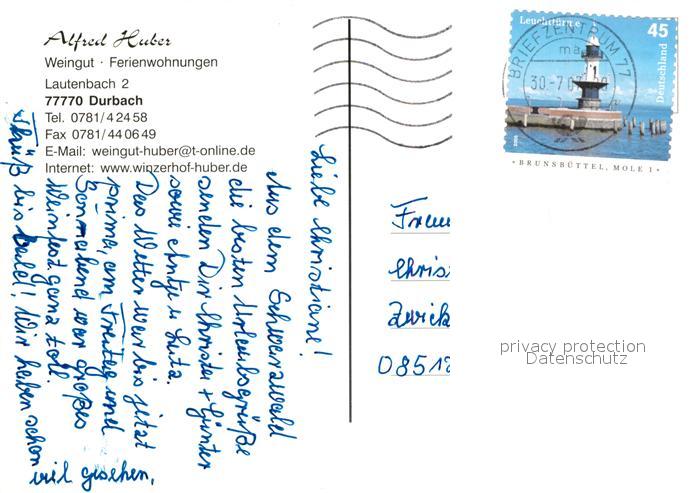 Alfred Huber
Weingut · Ferienwohnungen
Lautenbach 2
77770 Durbach
Tel. 0781/4 24 58
Fax 0781/44 06 49
E-Mail: weingut-huber@t-online.de
Internet: www.winzerhof-huber.de
Liebe Christiane!
Aus dem Schwarzwald
die besten Urlaubsgrüße
senden Dir Christa + Günter
sowie Antje u. Lutz.
Das Wetter war bis jetzt
prima, am Freitag und
Sonnabend war großes
Weinfest ganz toll.
Tschüß bis bald! Wir haben schon
viel gesehen.
Leuchttürme
45
Deutschland
BRIEFZENTRUM 77
30.-7.0
BRUNSBÜTTEL, MOLE 1
Frau
Chris
Zwick
08518
privacy protection
Datenschutz